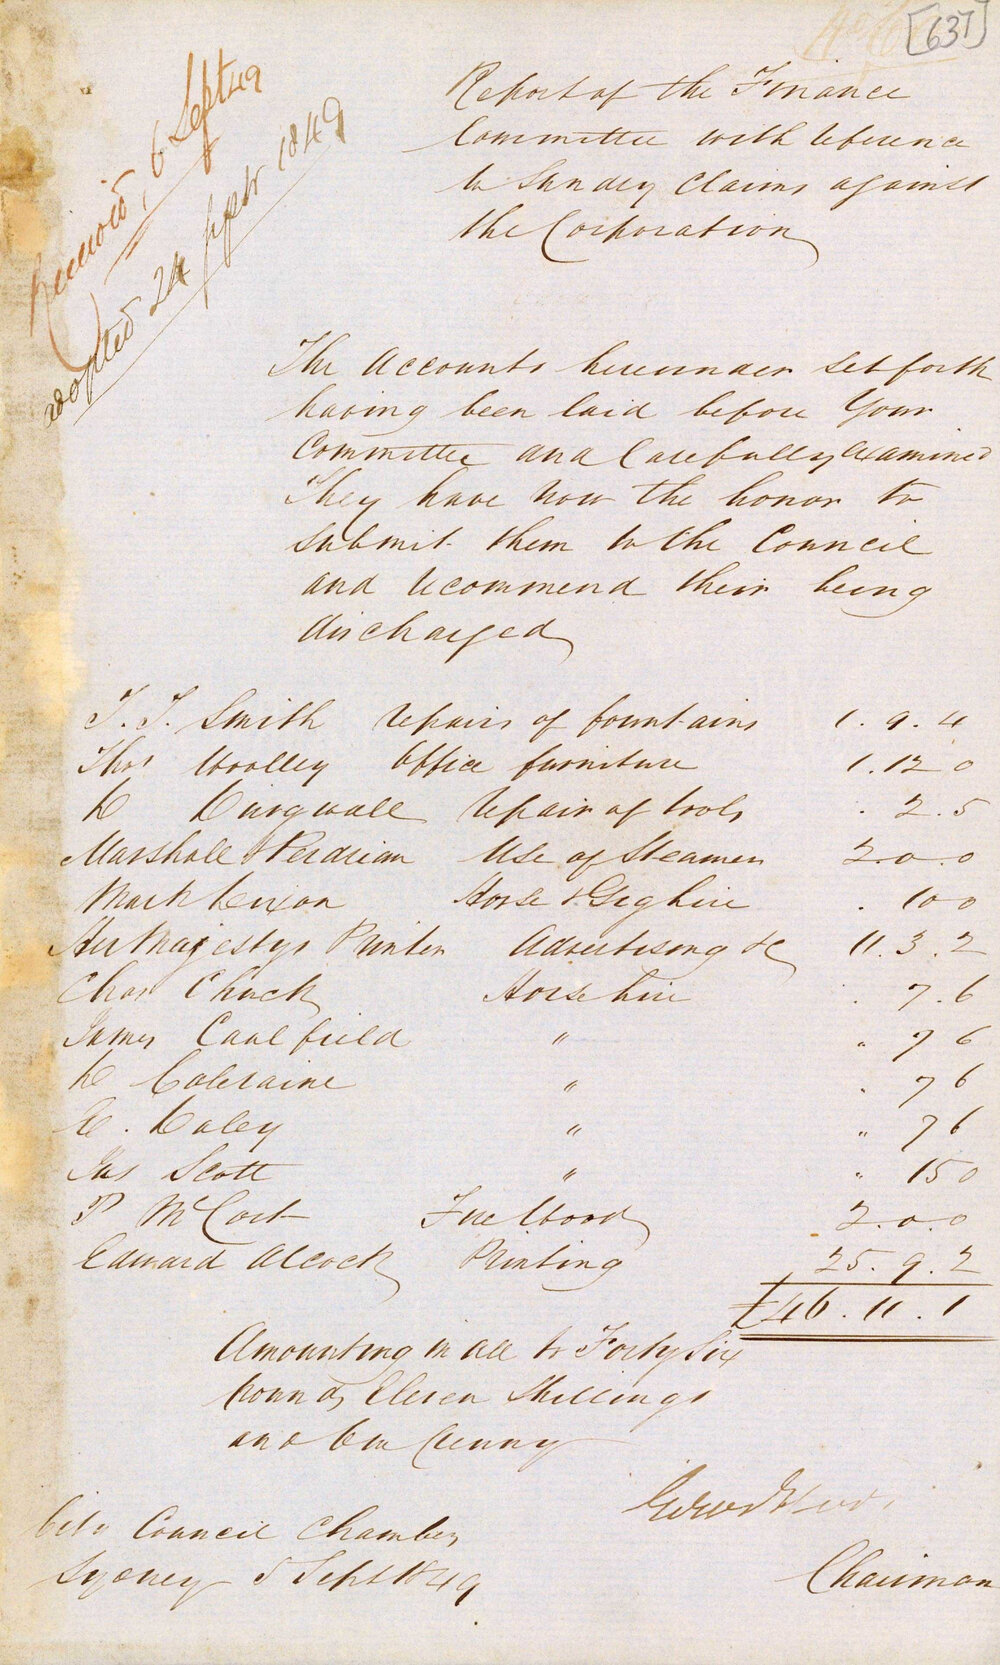 [637]
Received, 6 Sept 49
adopted 24 Septr 1849
Report of the Finance
Committee with reference
to Sundry Claims against
the Corporation
The Accounts hereunder set forth
having been laid before Your
Committee and Carefully examined
They have now the honor to
submit them to the Council
and recommend their being
discharged
T. T. Smith repairs of fountains 1 . 9 . 4
Thos Woolley Office furniture 1 . 12 0
D Dingwall repair of tools . 2 . 5
Marshall Perdrian Use of Steamer 2 . 0 . 0
Mark Dixon Horse & Gig hire . 10 0
Her Majestys Printer Advertising &c 11 . 3 . 2
Chas Chuck Horse hire . 7 . 6
James Caulfield " " 7 6
D Coleraine " . 7 6
E . Daley " " 7 6
Jas Scott " " 15 0
P McCort Fire Wood 2 . 0 . 0
Edward Alcock Printing 25 . 9 . 2
£46 . 11 . 1
Amounting in all to Forty Six
pounds Eleven Shillings
and One Penny
Chairman
City Council Chamber
Sydney 5 Sept 1849